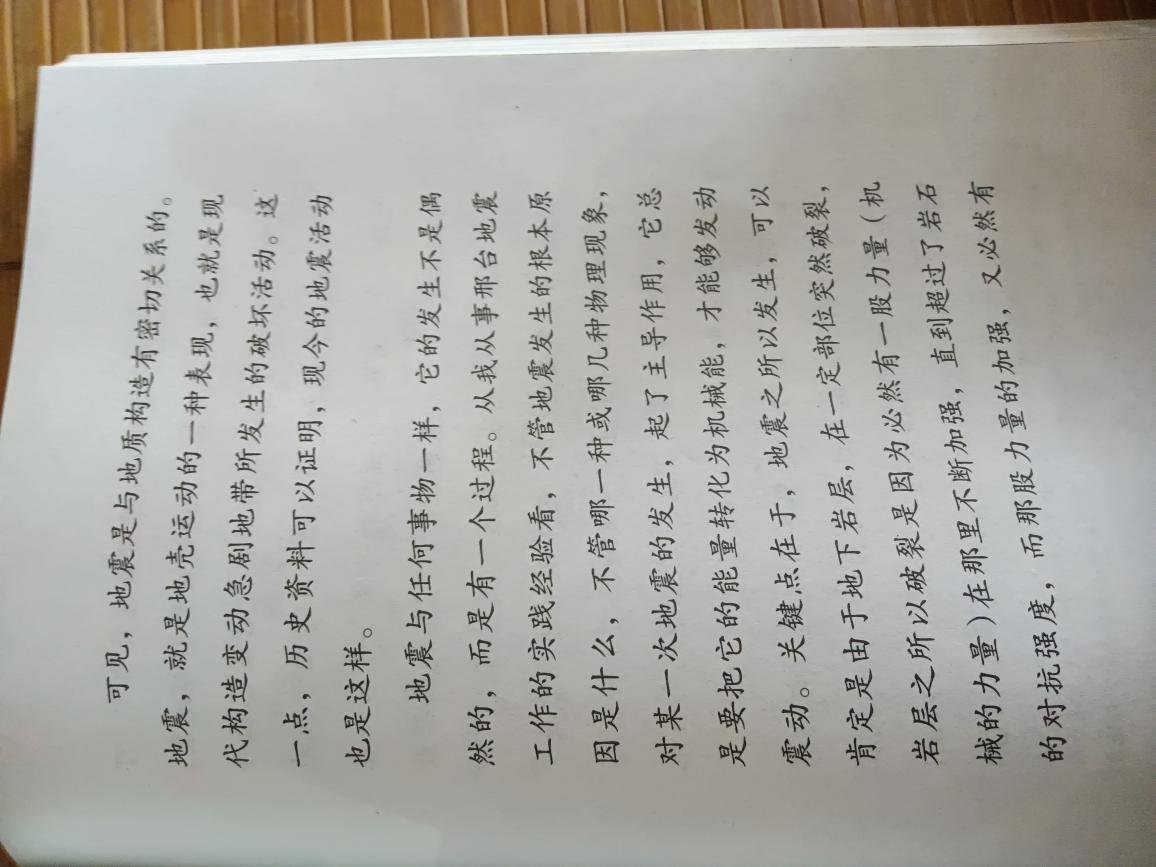 可见，地震是与地质构造有密切关系的。
地震，就是地壳运动的一种表现，也就是现
代构造变动急剧地带所发生的破坏活动。这
一点，历史资料可以证明，现今的地震活动
也是这样。
地震与任何事物一样，它的发生不是偶
然的，而是有一个过程。从我从事邢台地震
工作的实践经验看，不管地震发生的根本原
因是什么，不管哪一种或哪几种物理现象，
对某一次地震的发生，起了主导作用，它总
是要把它的能量转化为机械能，才能够发动
震动。关键点在于，地震之所以发生，可以
肯定是由于地下岩层，在一定部位突然破裂，
岩层之所以破裂是因为必然有一股力量（机
械的力量）在那里不断加强，直到超过了岩石
的对抗强度，而那股力量的加强，又必然有